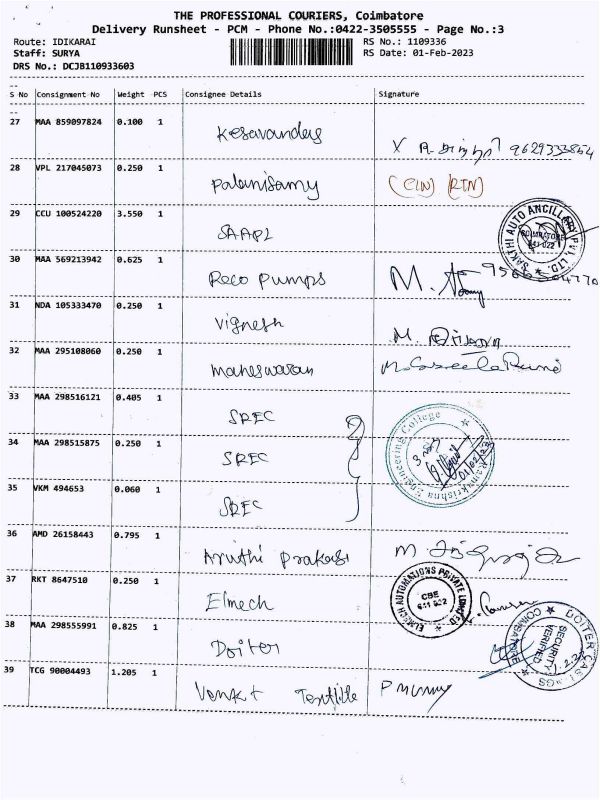 THE PROFESSIONAL COURIERS, Coimbatore
Delivery Runsheet - PCM - Phone No.:0422-3505555 - Page No.:3
Route: IDIKARAI RS No.: 1109336
Staff: SURYA RS Date: 01-Feb-2023
DRS No.: DCJB110933603
S No Consignment No Weight PCS Consignee Details Signature
27 MAA 859097824 0.100 1 Kesavandas 9629333854
28 VPL 217045073 0.250 1 Palanisamy (RTN)
29 CCU 100524220 3.550 1 SAAPL SAKTHI AUTO ANCILLARY PVT. LTD. COIMBATORE 641 022
30 MAA 569213942 0.625 1 Reco Pumps M.
31 NDA 105333470 0.250 1 Vignesh M.
32 MAA 295108060 0.250 1 Maheswaran
33 MAA 298516121 0.405 1 SREC
34 MAA 298515875 0.250 1 SREC Ramakrishna Engineering College 01/02/23
35 VKM 494653 0.060 1 SREC
36 AMD 26158443 0.795 1 Prakash
37 RKT 8647510 0.250 1 Elmech ELMECH AUTOMATIONS PRIVATE LIMITED CBE 641 022
38 MAA 298555991 0.825 1 Doiter DOITER CASTINGS COIMBATORE SECURITY VERIFIED
39 TCG 90004493 1.205 1 Venkat Textile